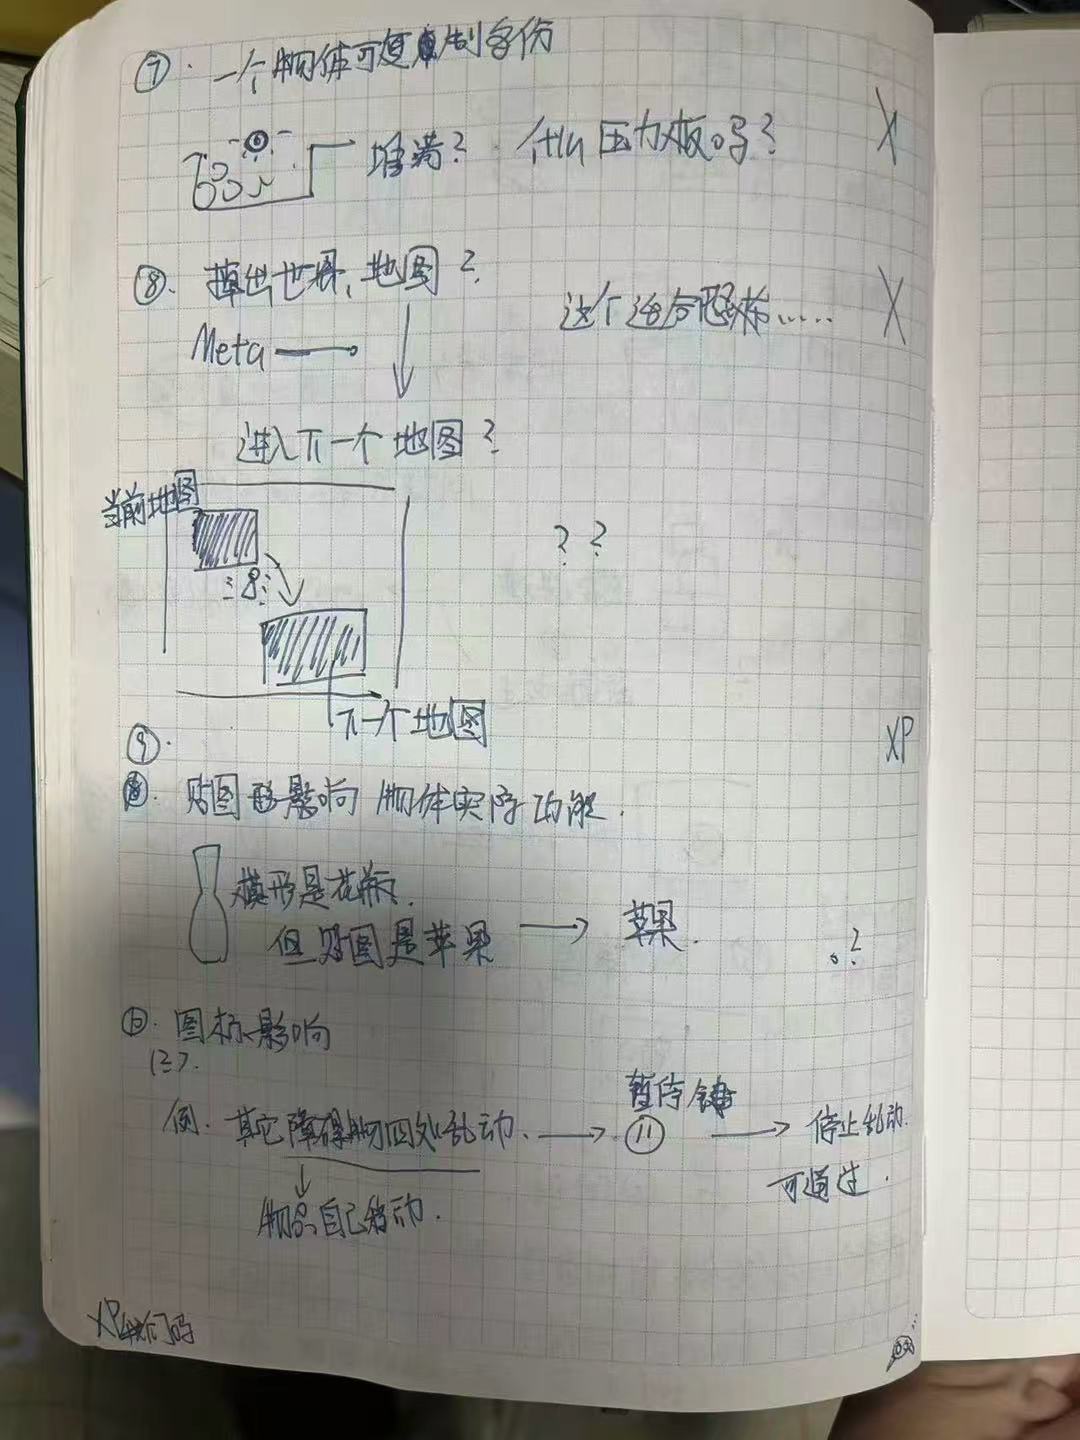 ⑦. 一个物体可复制多份
堆满? 什么压力板吗? X
⑧. 掉出世界、地图? X
这个适合恐怖......
Meta
进入下一个地图?
当前地图
? ?
下一个地图
⑨.
XP
贴图形影响物体实际功能.
模形是花瓶.
但贴图是苹果 → 苹果. ?
⑩. 图标影响
暂停键
例. 其它障碍物四处乱动. → ⏸ → 停止乱动.
可通过.
物品自己移动.
XP 门码